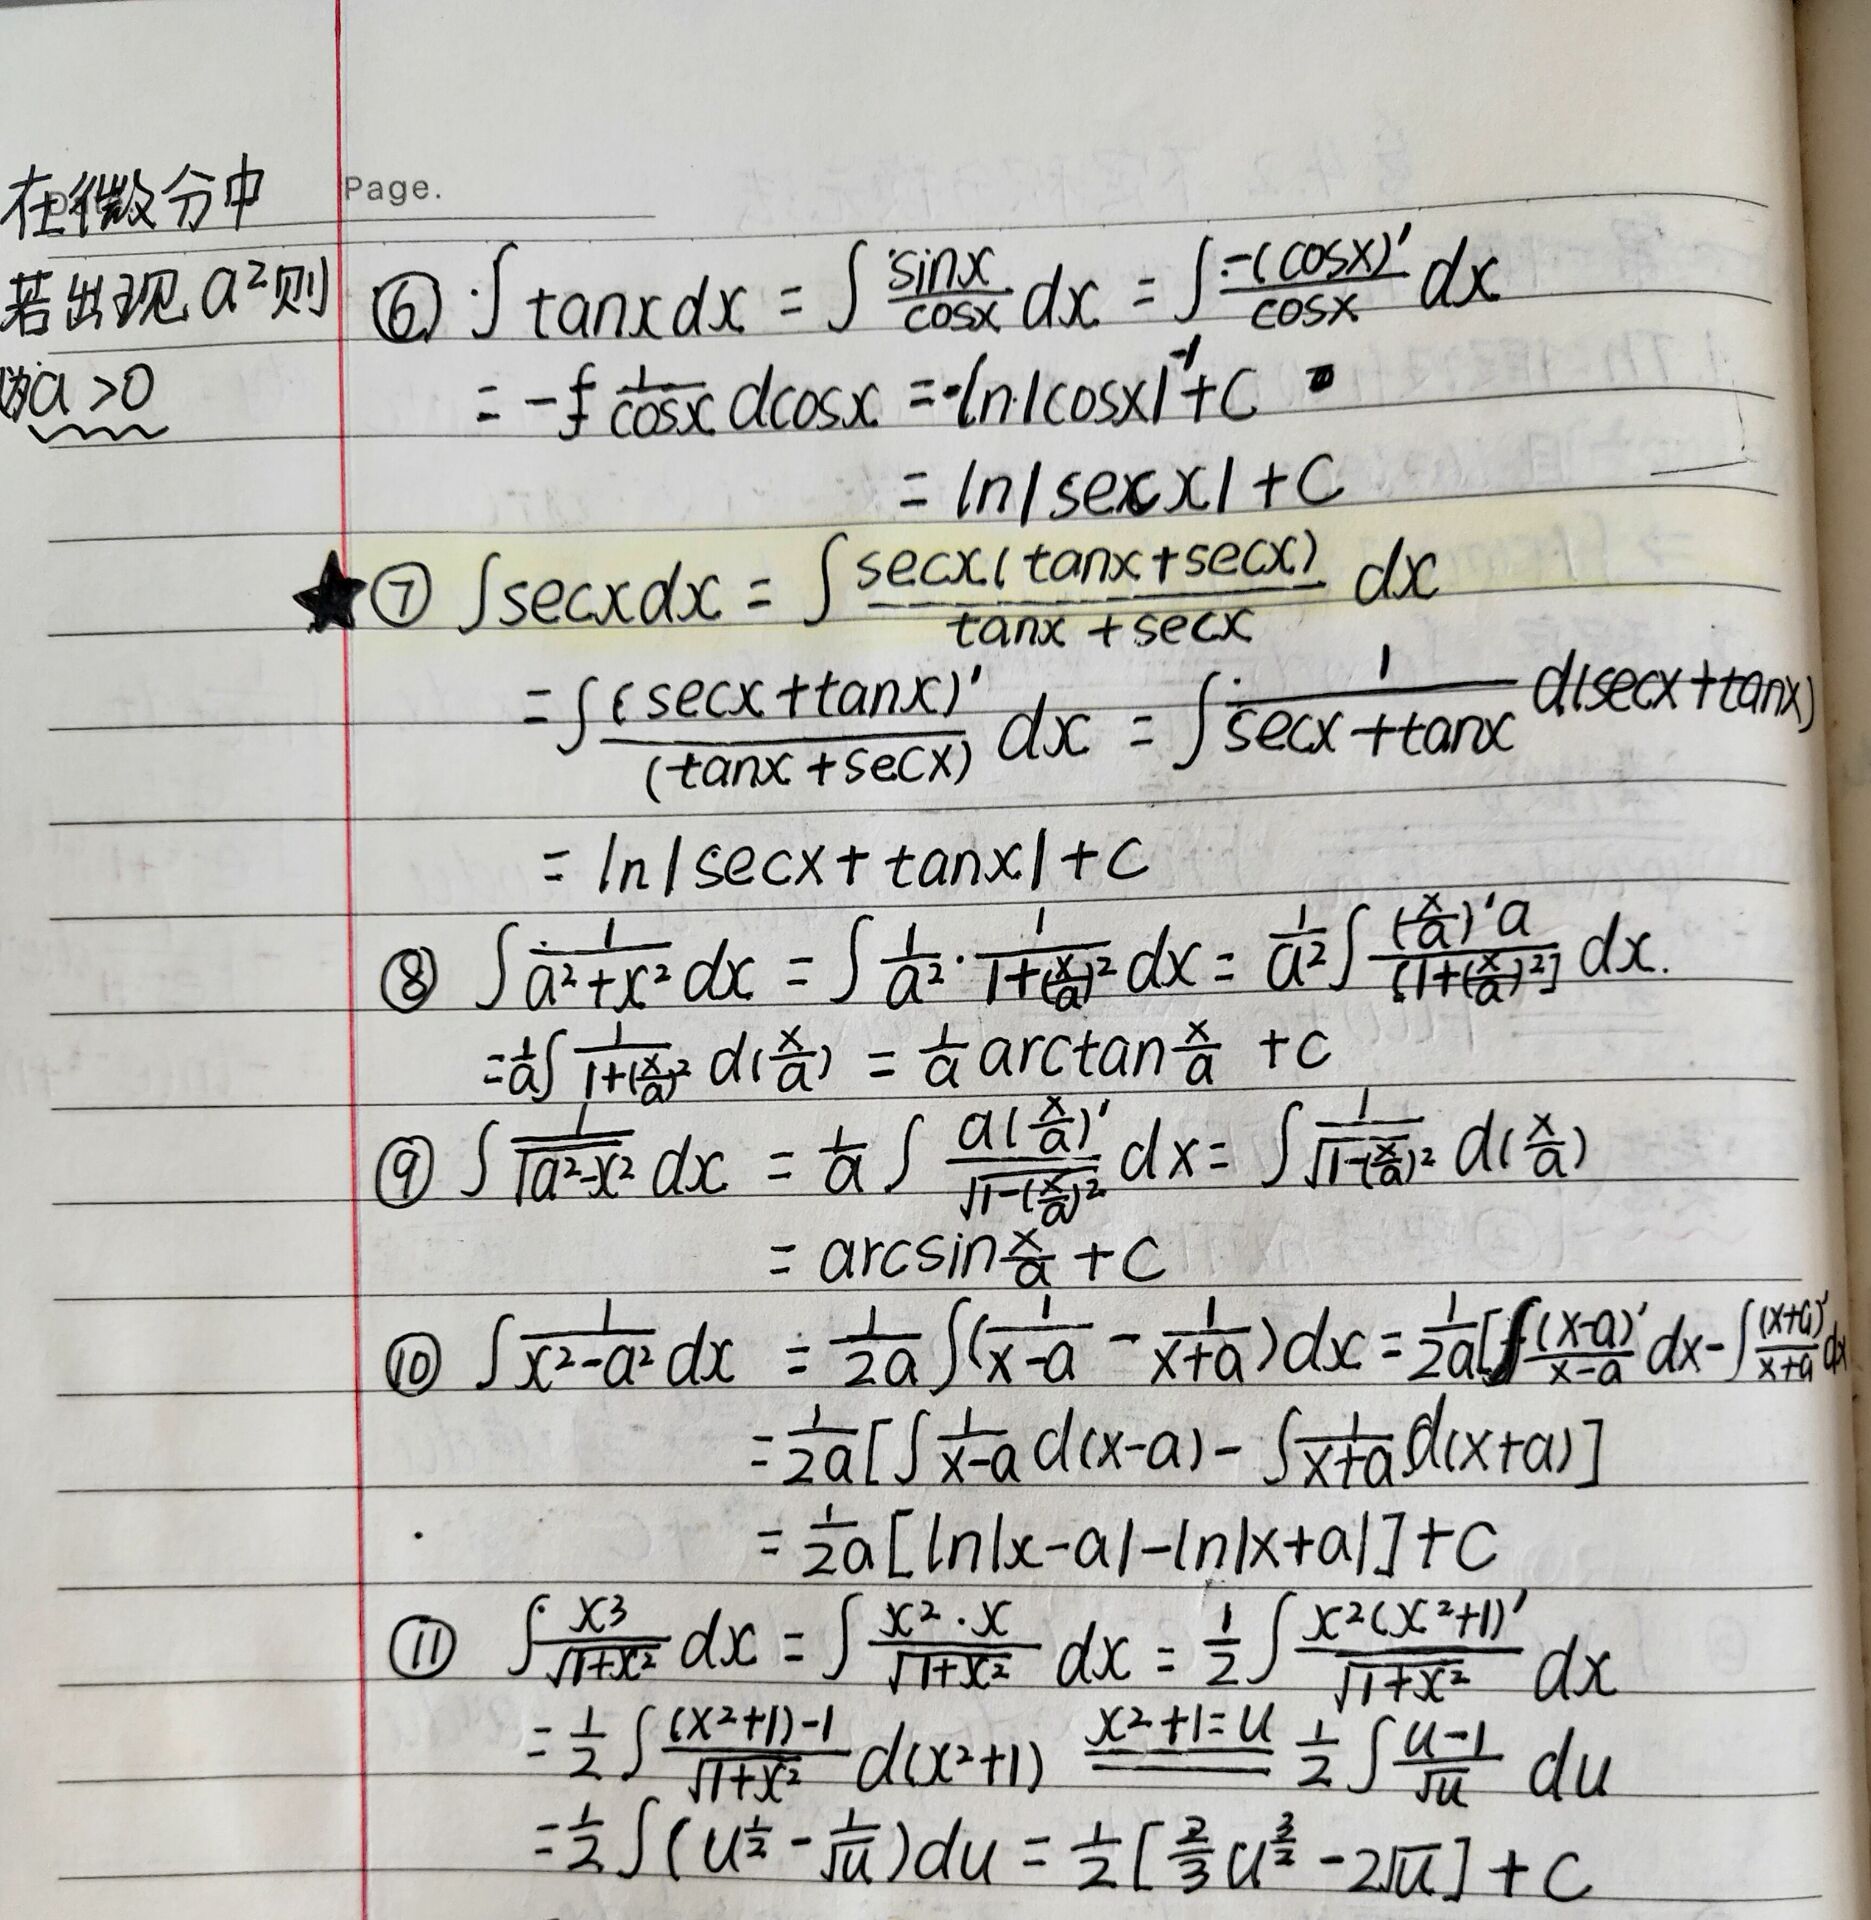 在微分中
若出现a²则
为a>0
Page.
⑥ ∫tanxdx = ∫ sinx/cosx dx = ∫ -(cosx)'/cosx dx
= -∫ 1/cosx dcosx = ln|cosx|⁻¹+C
= ln|secx|+C
★⑦ ∫secxdx = ∫ secx(tanx+secx)/(tanx+secx) dx
= ∫ (secx+tanx)'/(tanx+secx) dx = ∫ 1/(secx+tanx) d(secx+tanx)
= ln|secx+tanx|+C
⑧ ∫ 1/(a²+x²) dx = ∫ 1/a² · 1/(1+(x/a)²) dx = 1/a² ∫ (x/a)'a/[1+(x/a)²] dx.
= 1/a ∫ 1/(1+(x/a)²) d(x/a) = 1/a arctan x/a +C
⑨ ∫ 1/√(a²-x²) dx = 1/a ∫ a(x/a)'/√(1-(x/a)²) dx = ∫ 1/√(1-(x/a)²) d(x/a)
= arcsin x/a +C
⑩ ∫ 1/(x²-a²) dx = 1/2a ∫(1/(x-a) - 1/(x+a))dx = 1/2a [∫ (x-a)'/(x-a) dx - ∫ (x+a)'/(x+a) dx
= 1/2a [∫ 1/(x-a) d(x-a) - ∫ 1/(x+a) d(x+a)]
= 1/2a [ln|x-a|-ln|x+a|]+C
⑪ ∫ x³/√(1+x²) dx = ∫ x²·x/√(1+x²) dx = 1/2 ∫ x²(x²+1)'/√(1+x²) dx
= 1/2 ∫ ((x²+1)-1)/√(1+x²) d(x²+1) x²+1=u 1/2 ∫ (u-1)/√u du
= 1/2 ∫(u^(1/2) - 1/√u)du = 1/2 [2/3 u^(3/2) - 2√u]+C